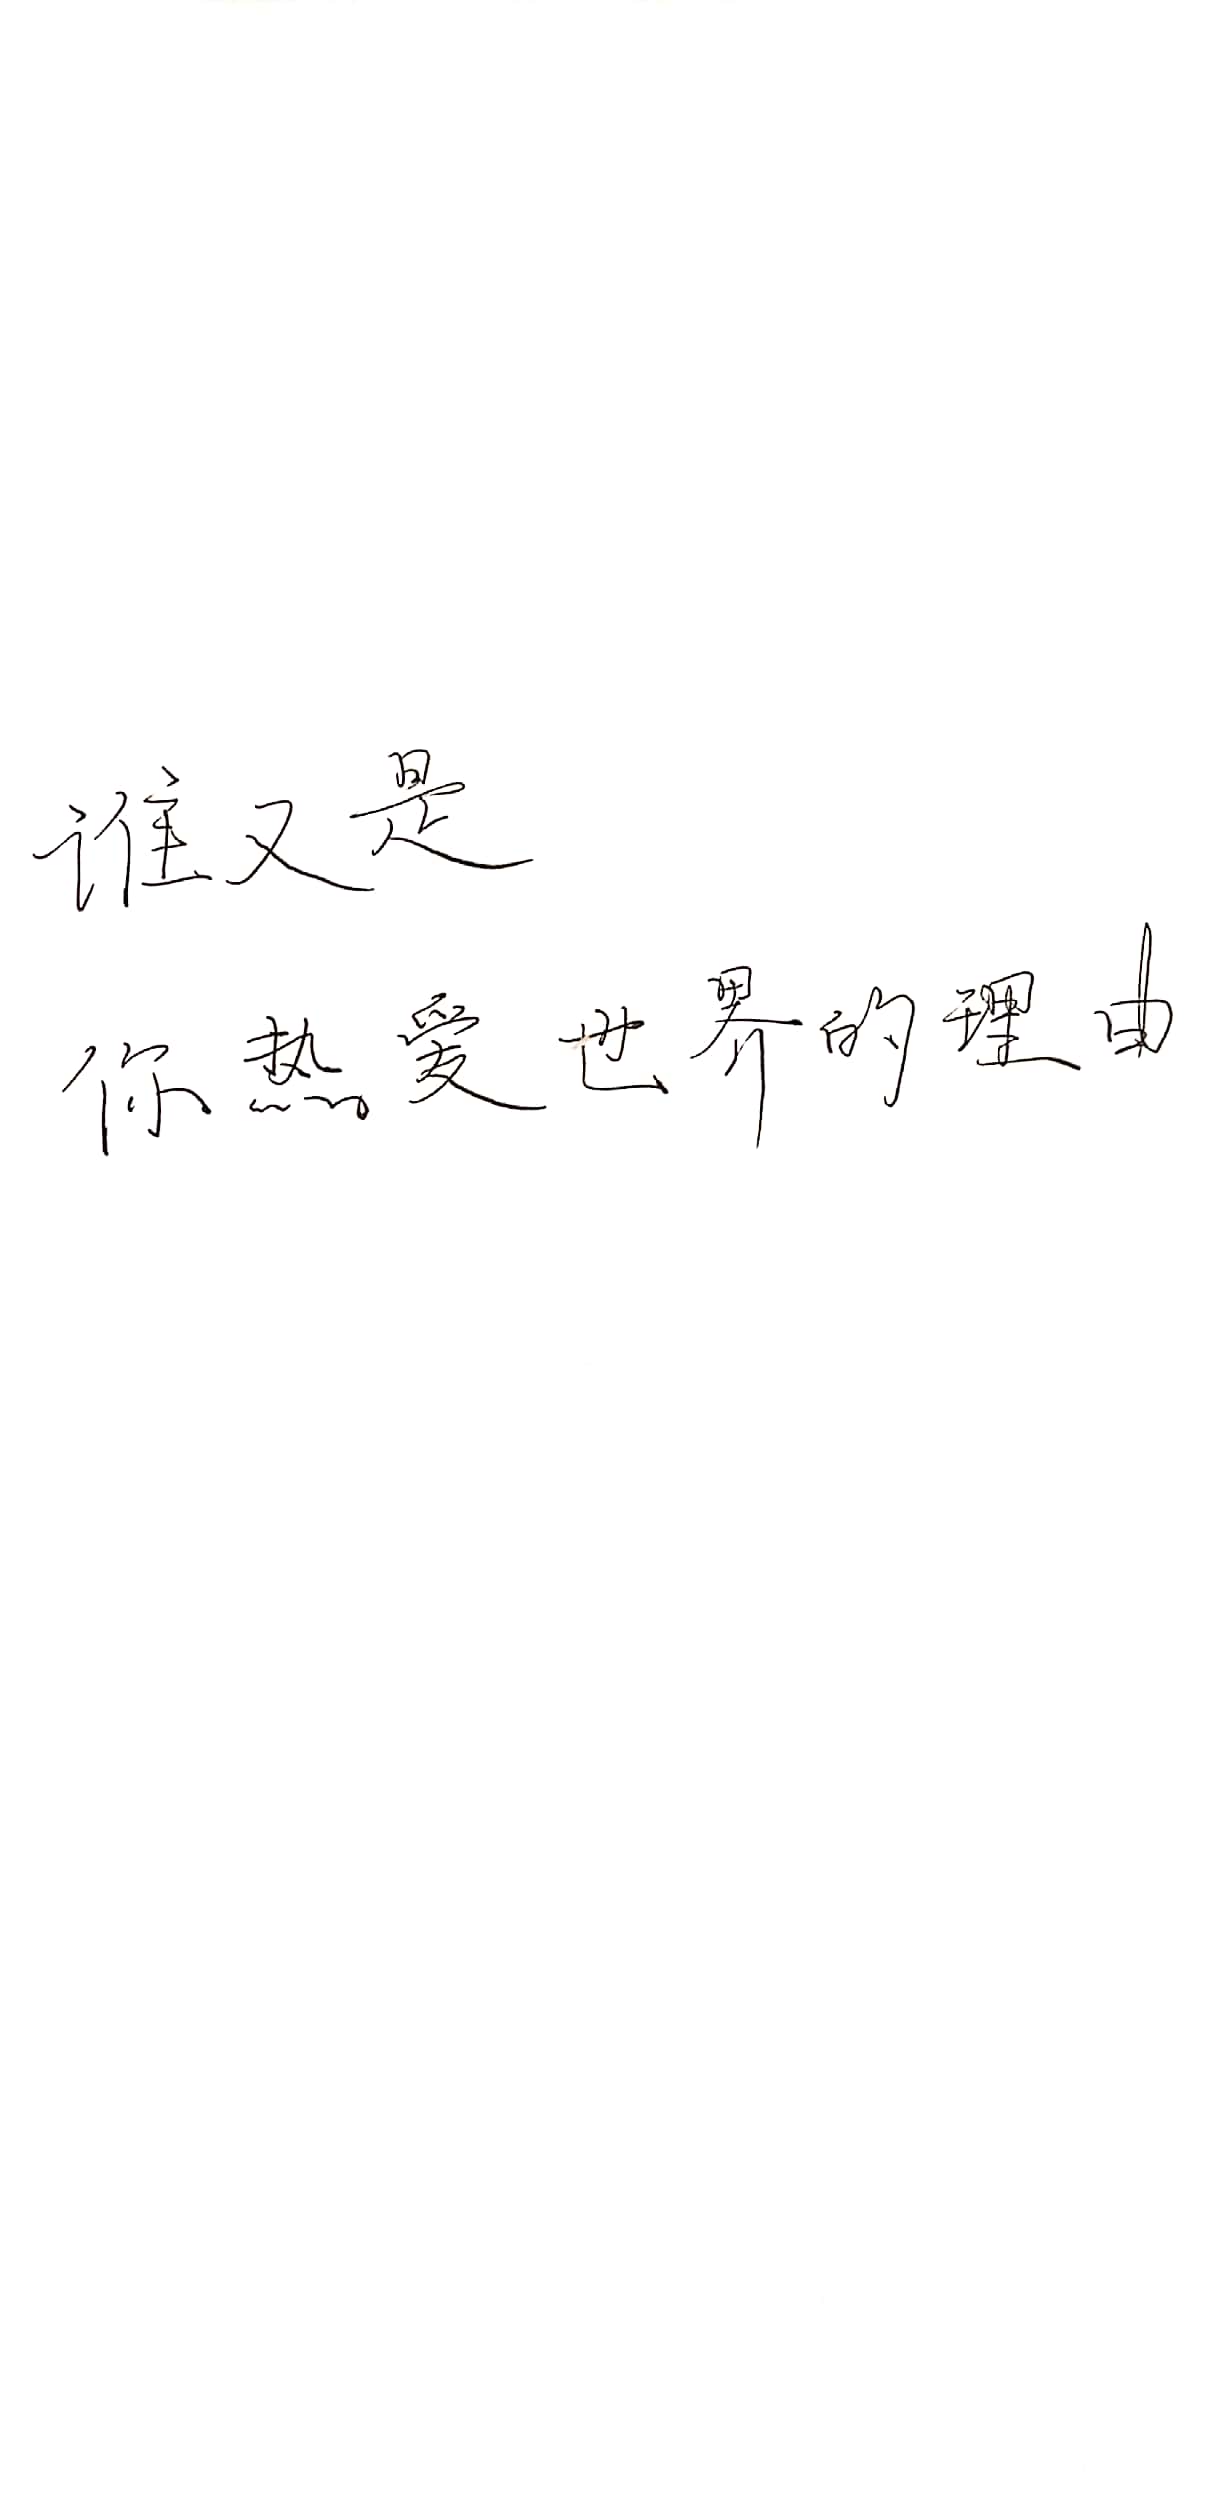 谁又是
你热爱世界的理由